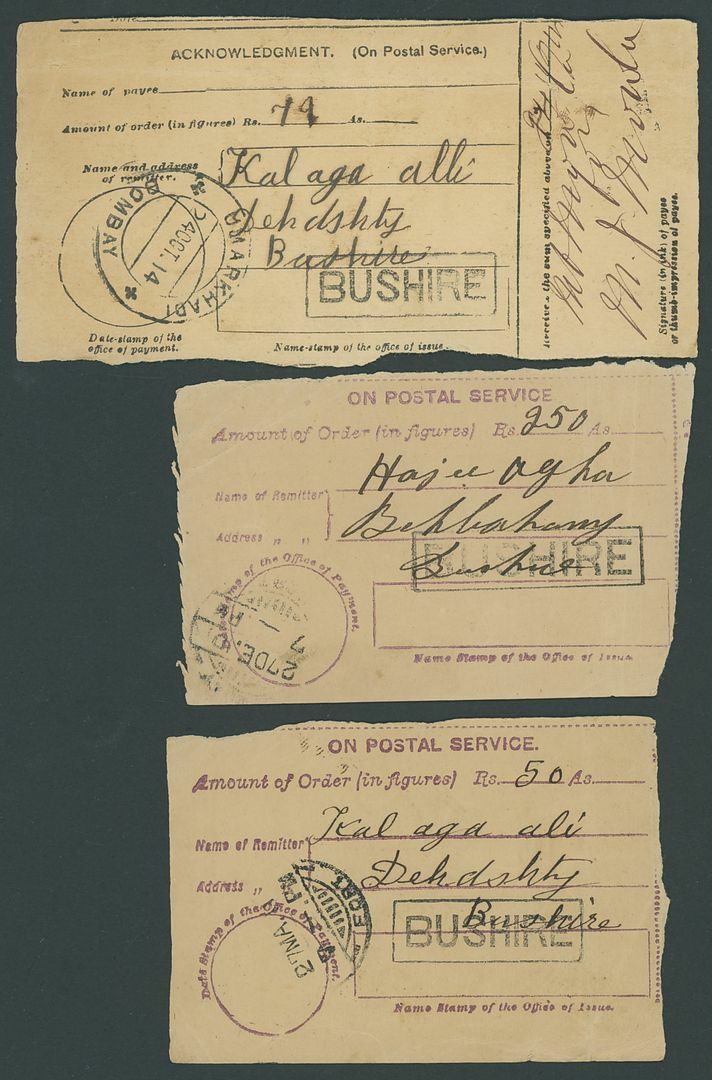 ACKNOWLEDGMENT. (On Postal Service.)
Name of payee
Amount of order (in figures) Rs. 74 As.
Name and address of remitter.
Kal aga alli
Dehdshty
Bushire
BUSHIRE
UMARKHADI
BOMBAY
24 OCT. 14
Date-stamp of the office of payment.
Name-stamp of the office of issue.
the sum specified above on
Signature (in ink) of payee or thumb-impression of payee.
ON POSTAL SERVICE
Amount of Order (in figures) Rs. 250 As.
Name of Remitter
Hajee Agha
Address " "
Behbahany
Bushire
BUSHIRE
of the Office of Payment.
27 DE
7
Name Stamp of the Office of Issue.
ON POSTAL SERVICE.
Amount of Order (in figures) Rs. 50 As.
Name of Remitter
Kal aga ali
Address "
Dehdshty
Bushire
BUSHIRE
FORT
27 MA
Date Stamp of the Office of Payment.
Name Stamp of the Office of Issue.